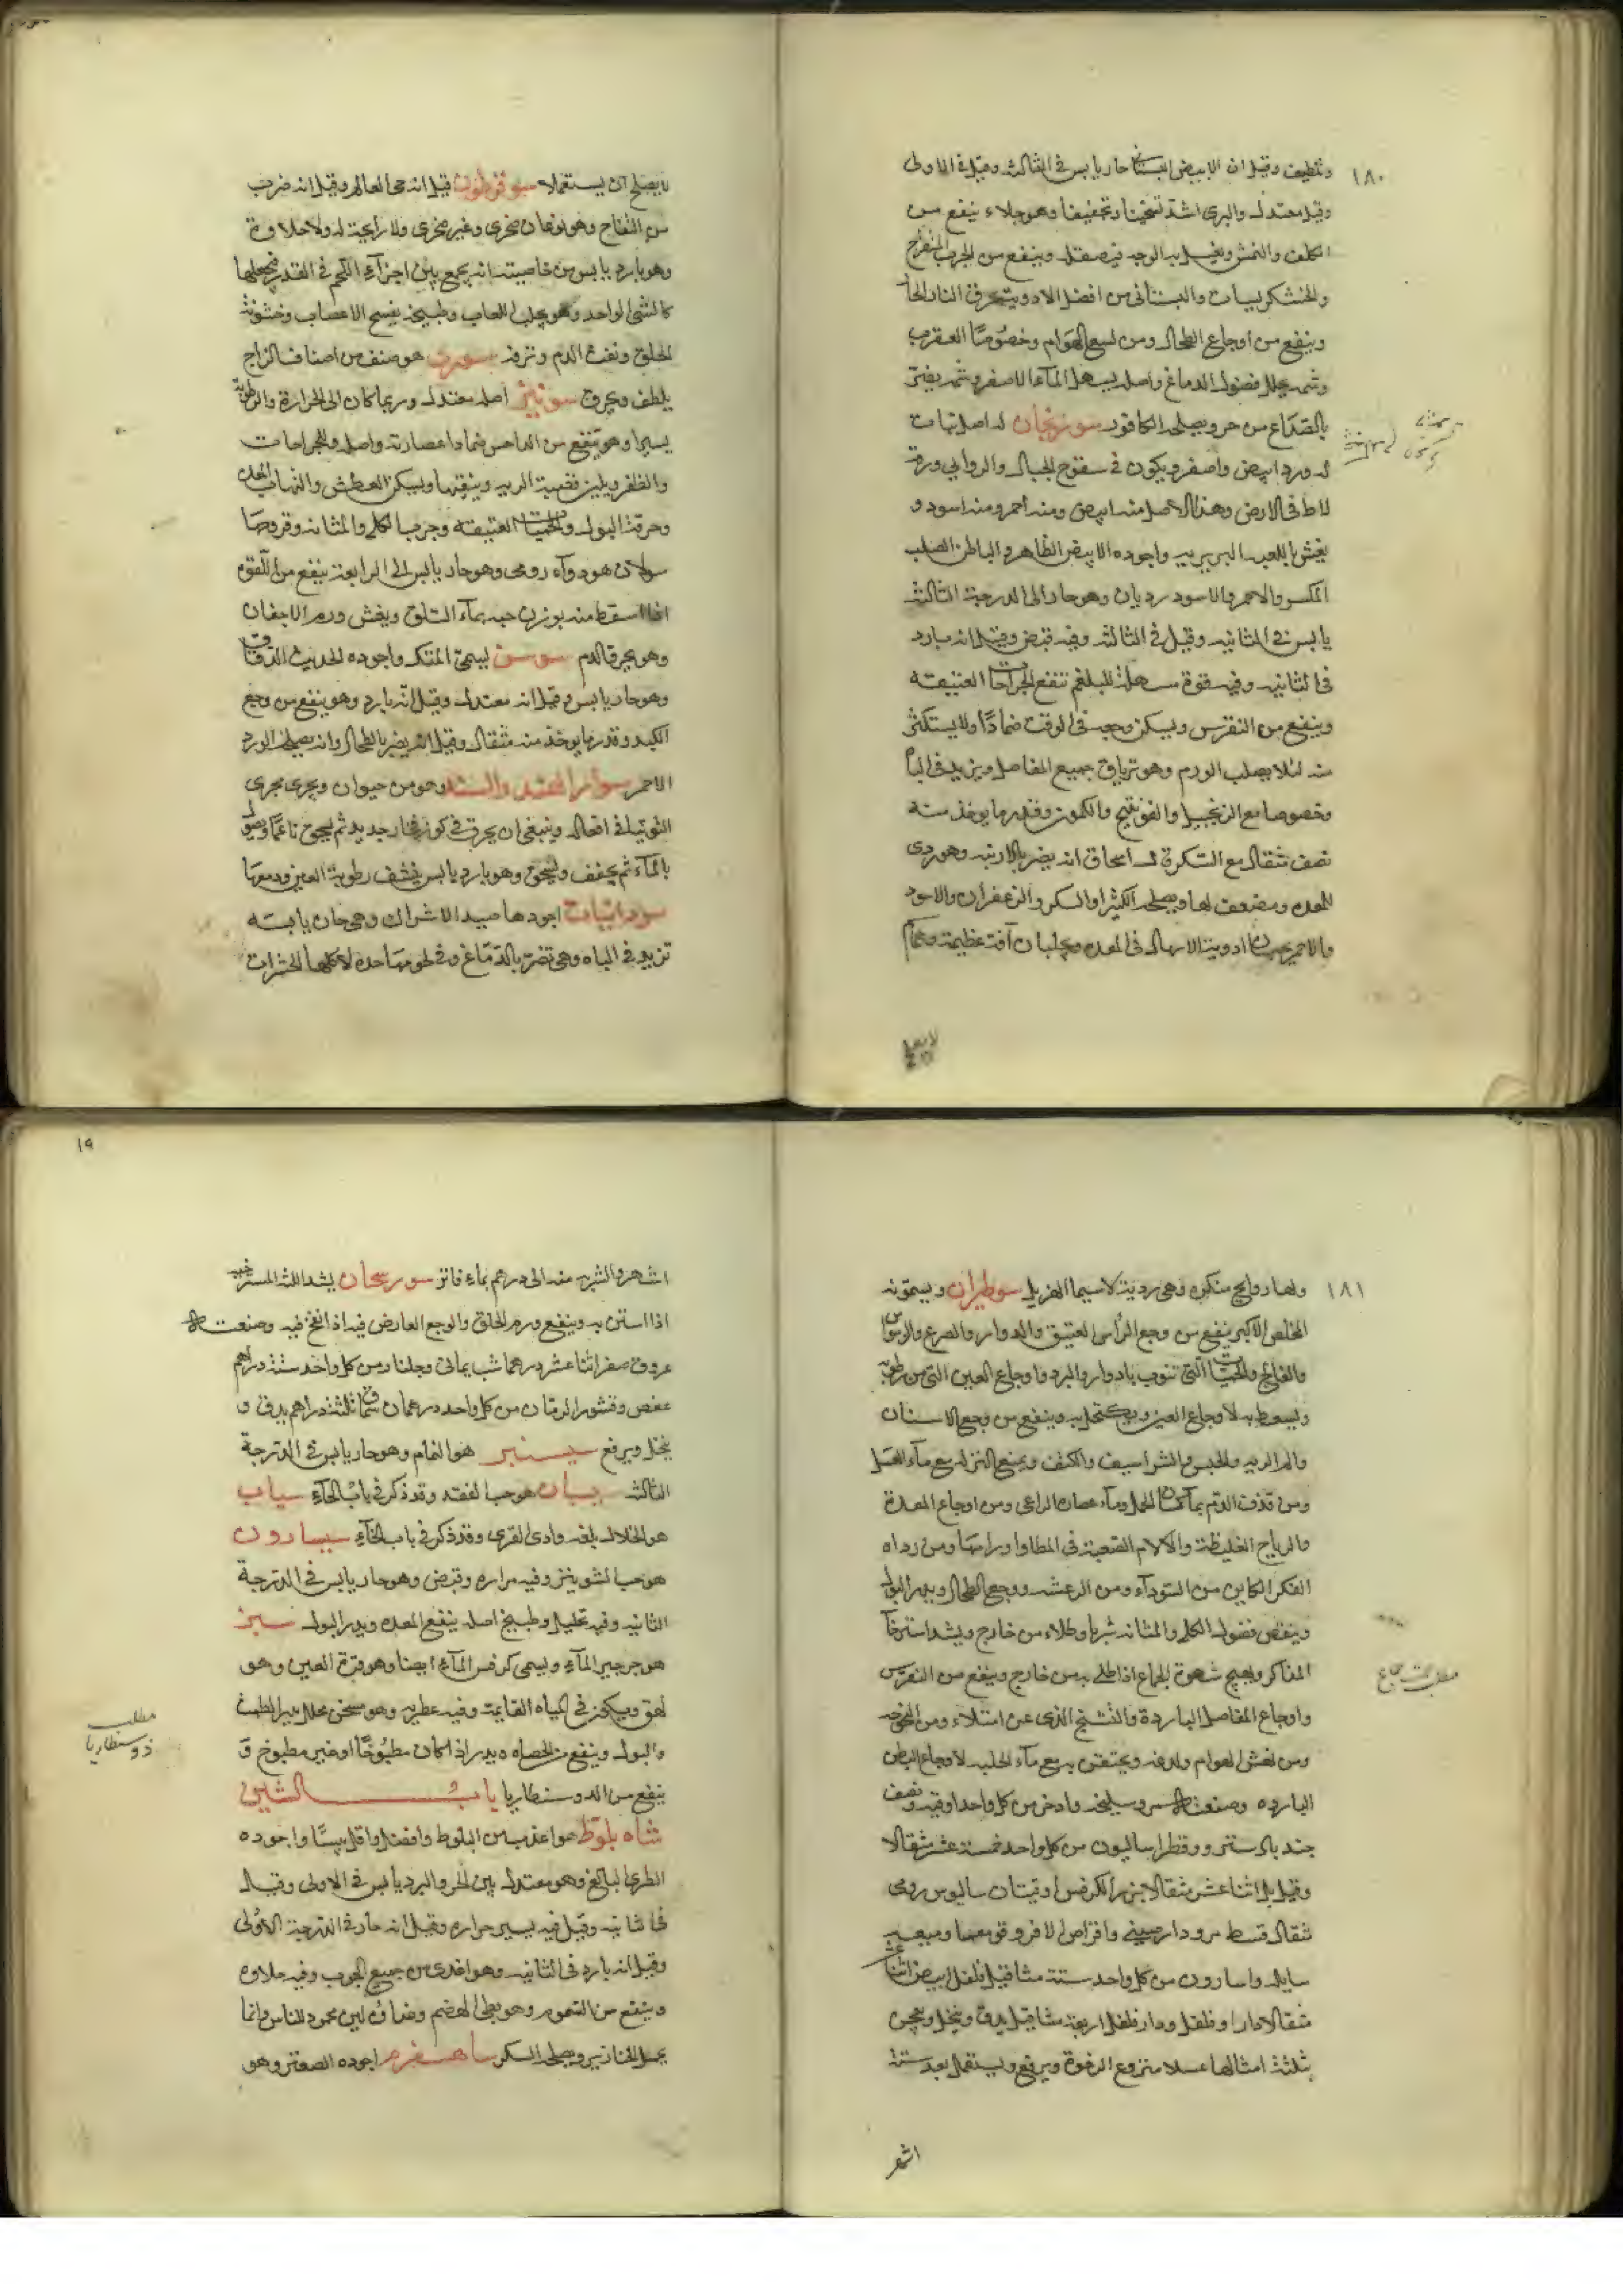 ١٨٠
وتلطيف وقيل ان الابيض البستاني حار يابس في الثالثة وقيل في الاولى
وقيل معتدل والبري اشد تسخينا وتجفيفا وهو جلاء ينفع من
الكلف والنمش ويغسل به الوجه فيصقله وينفع من الجرب المتقرح
والخشكريسات والبستاني من افضل الادوية لحرق النار الحار
وينفع من اوجاع الطحال ومن لسع الهوام وخصوصا العقرب
وشمه يحلل فضول الدماغ واصله يسهل الماء الاصفر وشمه يضر
بالصداع من حر ويصلحه الكافور سورنجان له اصل نبات
له ورد ابيض واصفر ويكون في سفوح الجبال والروابي ورقه
لاط في الارض وهذا الاصل منه ابيض ومنه احمر ومنه اسود و
يغش باللعبه البربريه واجوده الابيض الظاهر والباطن الصلب
المكسر والاحمر والاسود رديان وهو حار الى الدرجة الثالثة
يابس في الثانيه وقيل في الثالثه وفيه قبض وقيل انه بارد
في الثانيه وفيه قوة مسهلة للبلغم تنفع الجراحات العتيقه
وينفع من النقرس ويسكن وجعه في الوقت ضمادا ولا يستكثر
منه لئلا يصلب الورم وهو ترياق جميع المفاصل ويزيد في الباه
وخصوصا مع الزنجبيل والفوتنج والكمون وقدر ما يوخذ منه
نصف مثقال مع السكر قال اسحاق انه يضر بالارنبه وهو ردي
للمعده ومضعف لها ويصلحه الكثيرا والسكر والزعفران والاسود
والاحمر يحبسان ادوية الاسهال في المعده ويجلبان آفة عظيمة
لا يصلح
لا يصلح ان يستعملا سوقوطون قيل انه حي العالم وقيل انه ضرب
من التفاح وهو نوعان صخري وغير صخري ولا رايحة له ولا حلاوة
وهو بارد يابس من خاصيته انه يجمع بين اجزاء اللحم في القدر فيجعلها
كالشي الواحد وهو يجلب اللعاب وطبيخه يفسح الاعصاب وخشونة
الحلق ونفث الدم ونزفه سوري هو صنف من اصناف الزاج
يلطف ويحرق سوس اصله معتدل وربما كان الى الحرارة والرطوبة
يسيرا وهو ينفع من الداحس ضمادا عصارته واصله وللجراحات
والظفر ويلين قصبة الريه وينقيها ويسكن العطش والتهاب المعده
وحرقة البول والحميات العتيقه وجرب الكلى والمثانه وقروحها
سولان هو دواء رومي وهو حار يابس الى الرابعة ينفع من اللقوه
اذا اسقط منه بوزن حبه بماء السلق ويفش ورم الاجفان
وهو يحرق الدم سوسن ليسمى المتك واجوده الحديث الدقاق
وهو حار يابس وقيل انه معتدل وقيل انه بارد وهو ينفع من وجع
الكبد وقدر ما يوخذ منه مثقال وقيل انه يضر بالطحال وانه يصلحه الورد
الاحمر سوار الهند والسند وهو من حيوان ويجري مجرى
التوتيا في افعاله وينبغي ان يحرق في كوز فخار جديد ثم يسحق ناعما ويصول
بالماء ثم يجفف ويسحق وهو بارد يابس ينشف رطوبة العين ودمعها
سودانيات اجودها صيد الاشراك وهي حاره يابسه
تزيد في الباه وهي تضر بالدماغ وفي لحومها حده لاكلها الحشرات
١٨١
ولها روايح منكره وهي رديئة لا سيما الهزيل سوطيران ويسمونه
المخلص الاكبر ينفع من وجع الراس العتيق والدوار والصرع والوسواس
والفالج والحميات التي تنوب بادوار والبرد واوجاع العين التي من رطوبه
ويسعط به لاوجاع العين ويكتحل به وينفع من وجع الاسنان
والم الريه والجنبين والشراسيف والكتف ويمنع النزله مع ماء العسل
ومن قذف الدم بماء لسان الحمل وماء عصا الراعي ومن اوجاع المعدة
والرياح الغليظة والآلام الصعبة في المطا واورامها ومن رداه
الفكر الكاين من السوداء ومن الرعشه ووجع الطحال ويدر البول
وينقص فضول الكلى والمثانه شربا وطلاء من خارج ويشد استرخا
المذاكر ويهيج شهوة الجماع اذا طلي به من خارج وينفع من النقرس
واوجاع المفاصل الباردة والتشنج الذي عن امتلاء ومن
ومن نهش الهوام ولدغه ويحتقن به مع ماء الحلبه لاوجاع البطن
البارده وصنعته مر وسليخه واذخر من كل واحد اوقيه ونصف
جند بادستر وفطراساليون من كل واحد خمسة عشر مثقالا
وقيل بل اثنا عشر مثقالا بزر الكرفس اوقيتان ساليوس رومي
مثقال قسط مر ودارصيني واقراص الافروقومعما وميعه
سايله واسارون من كل واحد ستة مثاقيل فلفل ابيض اثنا عشر
مثقالا دار فلفل اربعة مثاقيل يدق وينخل ويعجن
بثلثة امثالها عسلا منزوع الرغوة ويرفع ويستعمل بعد ستة
اشهر
١٩
اشهر والشربه منه الى درهم بماء فاتر سورنجان يشد اللثة المسترخيه
اذا استن به وينفع ورم الحلق والوجع العارض فيه اذا نفخ فيه وصنعته
عروق صفر اثنا عشر درهما شب يماني وجلنار من كل واحد ستة دراهم
عفص وقشور الرمان من كل واحد درهمان سماق ثلثة دراهم يدق و
ينخل ويرفع سيسنبر هو النمام وهو حار يابس في الدرجة
الثالثه سيسبان هو حب الفقد وقد ذكر في باب الحاء سياب
هو الخلال بلغه وادي القرى وقد ذكر في باب الخاء سيسارون
هو حب الشونيز وفيه مراره وقبض وهو حار يابس في الدرجة
الثانيه وفيه تحليل وطبيخ اصله ينفع المعده ويدر البول سين
هو جرجير الماء ويسمى كرفس الماء ايضا وهو قرة العين وهو
لهق ويكون في المياه القايمة وفيه عطريه وهو مسخن محلل يدر الطمث
والبول وينفع من الحصاه ويدر اذا كان مطبوخا او غير مطبوخ و
ينفع من الدوسنطاريا باب الشين
شاه بلوط هو اعذب من البلوط وافضل واقل يبسا واجوده
الطري البالغ وهو معتدل بين الحر والبرد يابس في الاولى وقيل
في الثانيه وقيل فيه يسير حراره وقيل انه حار في الدرجة الاولى
وقيل انه بارد في الثانيه وهو اغذى من جميع الحبوب وفيه حلاوه
وينفع من السموم وهو بطي الهضم وغذاؤه ليس محمود للناس وانما
يصلح للخنازير ويصلحه السكر شاهسفرم اجوده الصعتر وهو
مطلب
ذو سنطاريا